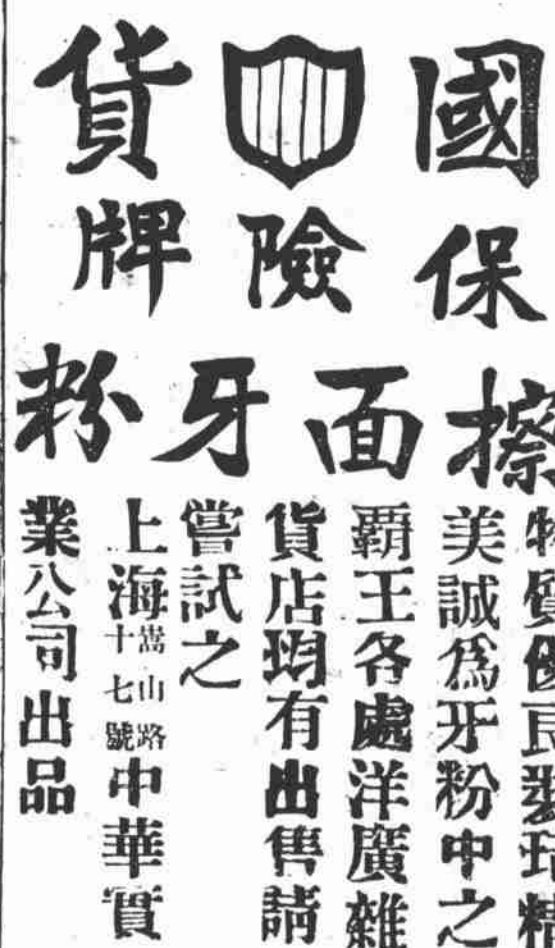 國貨
保險牌
擦面牙粉
物質優良裝璜精
美誠爲牙粉中之
覇王各處洋廣雜
貨店均有出售請
嘗試之
上海嵩山路十七號中華實
業公司出品